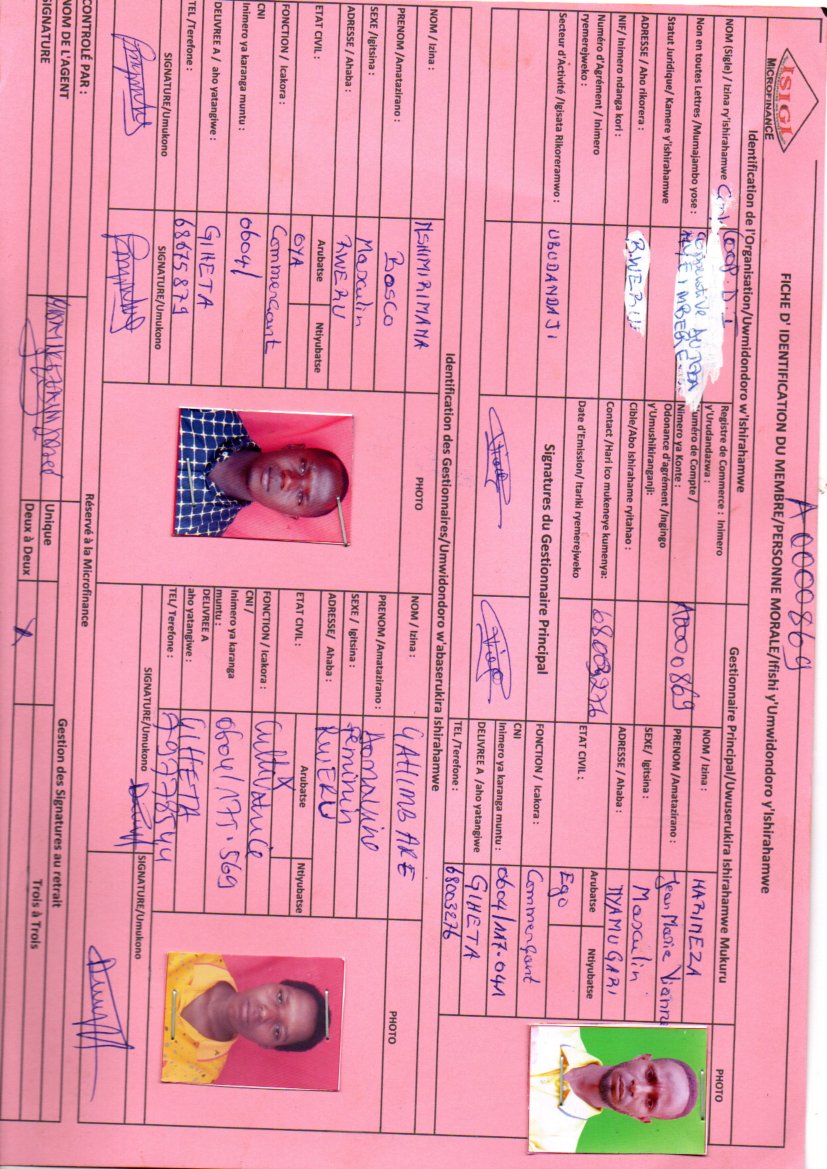 ISIGI
MICROFINANCE
A 0000869
FICHE D' IDENTIFICATION DU MEMBRE/PERSONNE MORALE/Ifishi y'Umwidondoro y'Ishirahamwe
Identification de l'Organisation/Uwmidondoro w'Ishirahamwe
NOM (Sigle) / Izina ry'ishirahamwe
COOP. D I
Non en toutes Lettres /Mumajambo yose :
Statut Juridique/ Kamere y'ishirahamwe
ADRESSE / Aho rikorera :
RWERU
NIF/ Inimero ndanga kori :
Numéro d'Agrément / Inimero
ryemerejweko :
Secteur d'Activité /Igisata Rikoreramwo :
UBUDANDAJI
Registre de Commerce : Inimero
y'Urudandazwa :
uméro de Compte /
Nimero ya Konte :
A0000869
Odonance d'agrément /Ingingo
y'Umushikiranganji:
Cible/Abo Ishirahame ryitaho :
Contact /Hari Ico mukeneye kumenya:
68003276
Date d'Emission/ Itariki ryemerejweko
Signatures du Gestionnaire Principal
Gestionnaire Principal/Uwuserukira Ishirahamwe Mukuru
PHOTO
NOM / Izina :
HARIMEZA
PRENOM /Amatazirano :
Jean Marie Vianney
SEXE/ Igitsina :
Masculin
ADRESSE / Ahaba :
NYAMUGARI
ETAT CIVIL :
Arubatse
Ntiyubatse
Ego
FONCTION / Icakora :
Commerçant
CNI
Inimero ya karanga muntu :
0604/117.041
DELIVREE A /aho yatangiwe
GIHETA
TEL /Terefone :
68003276
Identification des Gestionnaires/Umwidondoro w'abaserukira Ishirahamwe
NOM / Izina :
NSHIMIRIMANA
PRENOM /Amatazirano :
Bosco
SEXE /Igitsina :
Masculin
ADRESSE / Ahaba :
RWERU
ETAT CIVIL :
Arubatse
Ntiyubatse
OYA
FONCTION / Icakora :
Commerçant
CNI
Inimero ya karanga muntu :
0604/
DELIVREE A / aho yatangiwe :
GIHETA
TEL /Terefone :
68675879
SIGNATURE/Umukono
SIGNATURE/Umukono
PHOTO
NOM / Izina :
GAHIMBARE
PRENOM /Amatazirano :
SEXE / Igitsina :
Feminin
ADRESSE/ Ahaba :
RWERU
ETAT CIVIL :
Arubatse
Ntiyubatse
X
FONCTION / Icakora :
Cultivatrice
CNI /
Inimero ya karanga
muntu :
0604/175.569
DELIVREE A
aho yatangiwe :
GIHETA
TEL/ Terefone :
SIGNATURE/Umukono
SIGNATURE/Umukono
PHOTO
Réservé à la Microfinance
CONTROLÉ PAR :
NOM DE L'AGENT
SIGNATURE
Gestion des Signatures au retrait
Unique
Deux à Deux
X
Trois à Trois